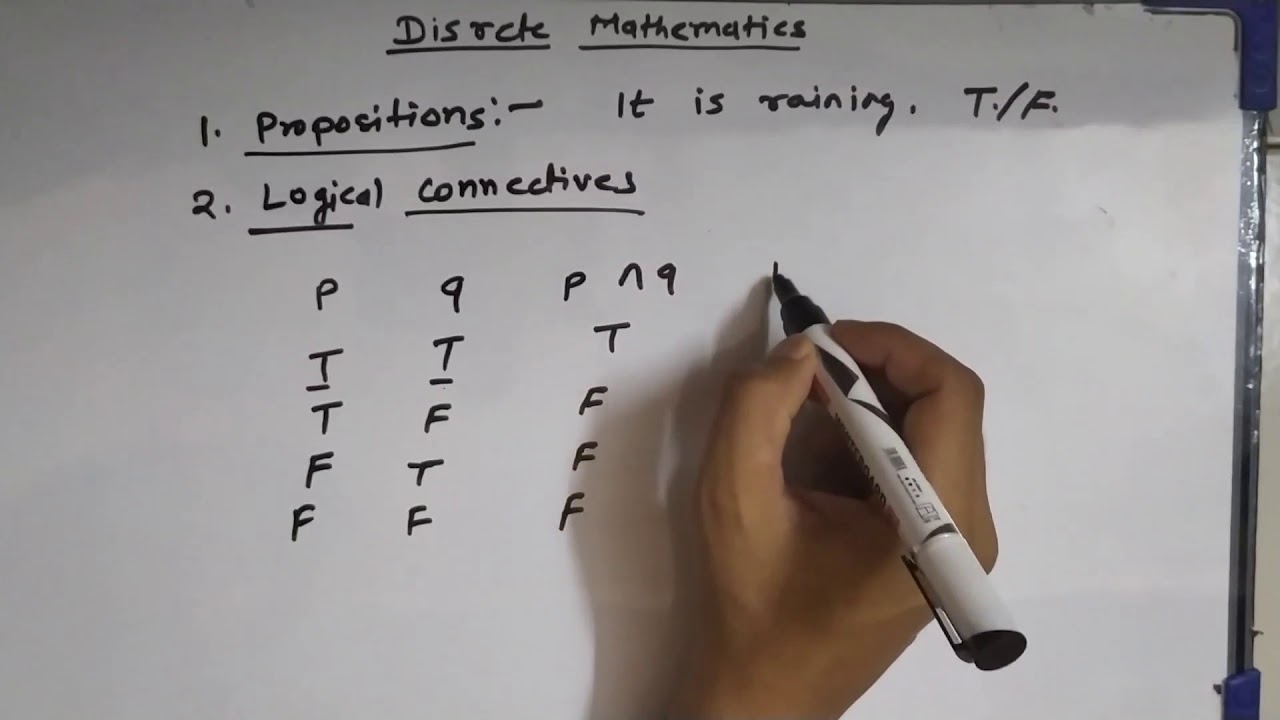 Disrete Mathematics
1. Propositions:- It is raining. T./F.
2. Logical connectives
P q P ∧ q
T T T
T F F
F T F
F F F